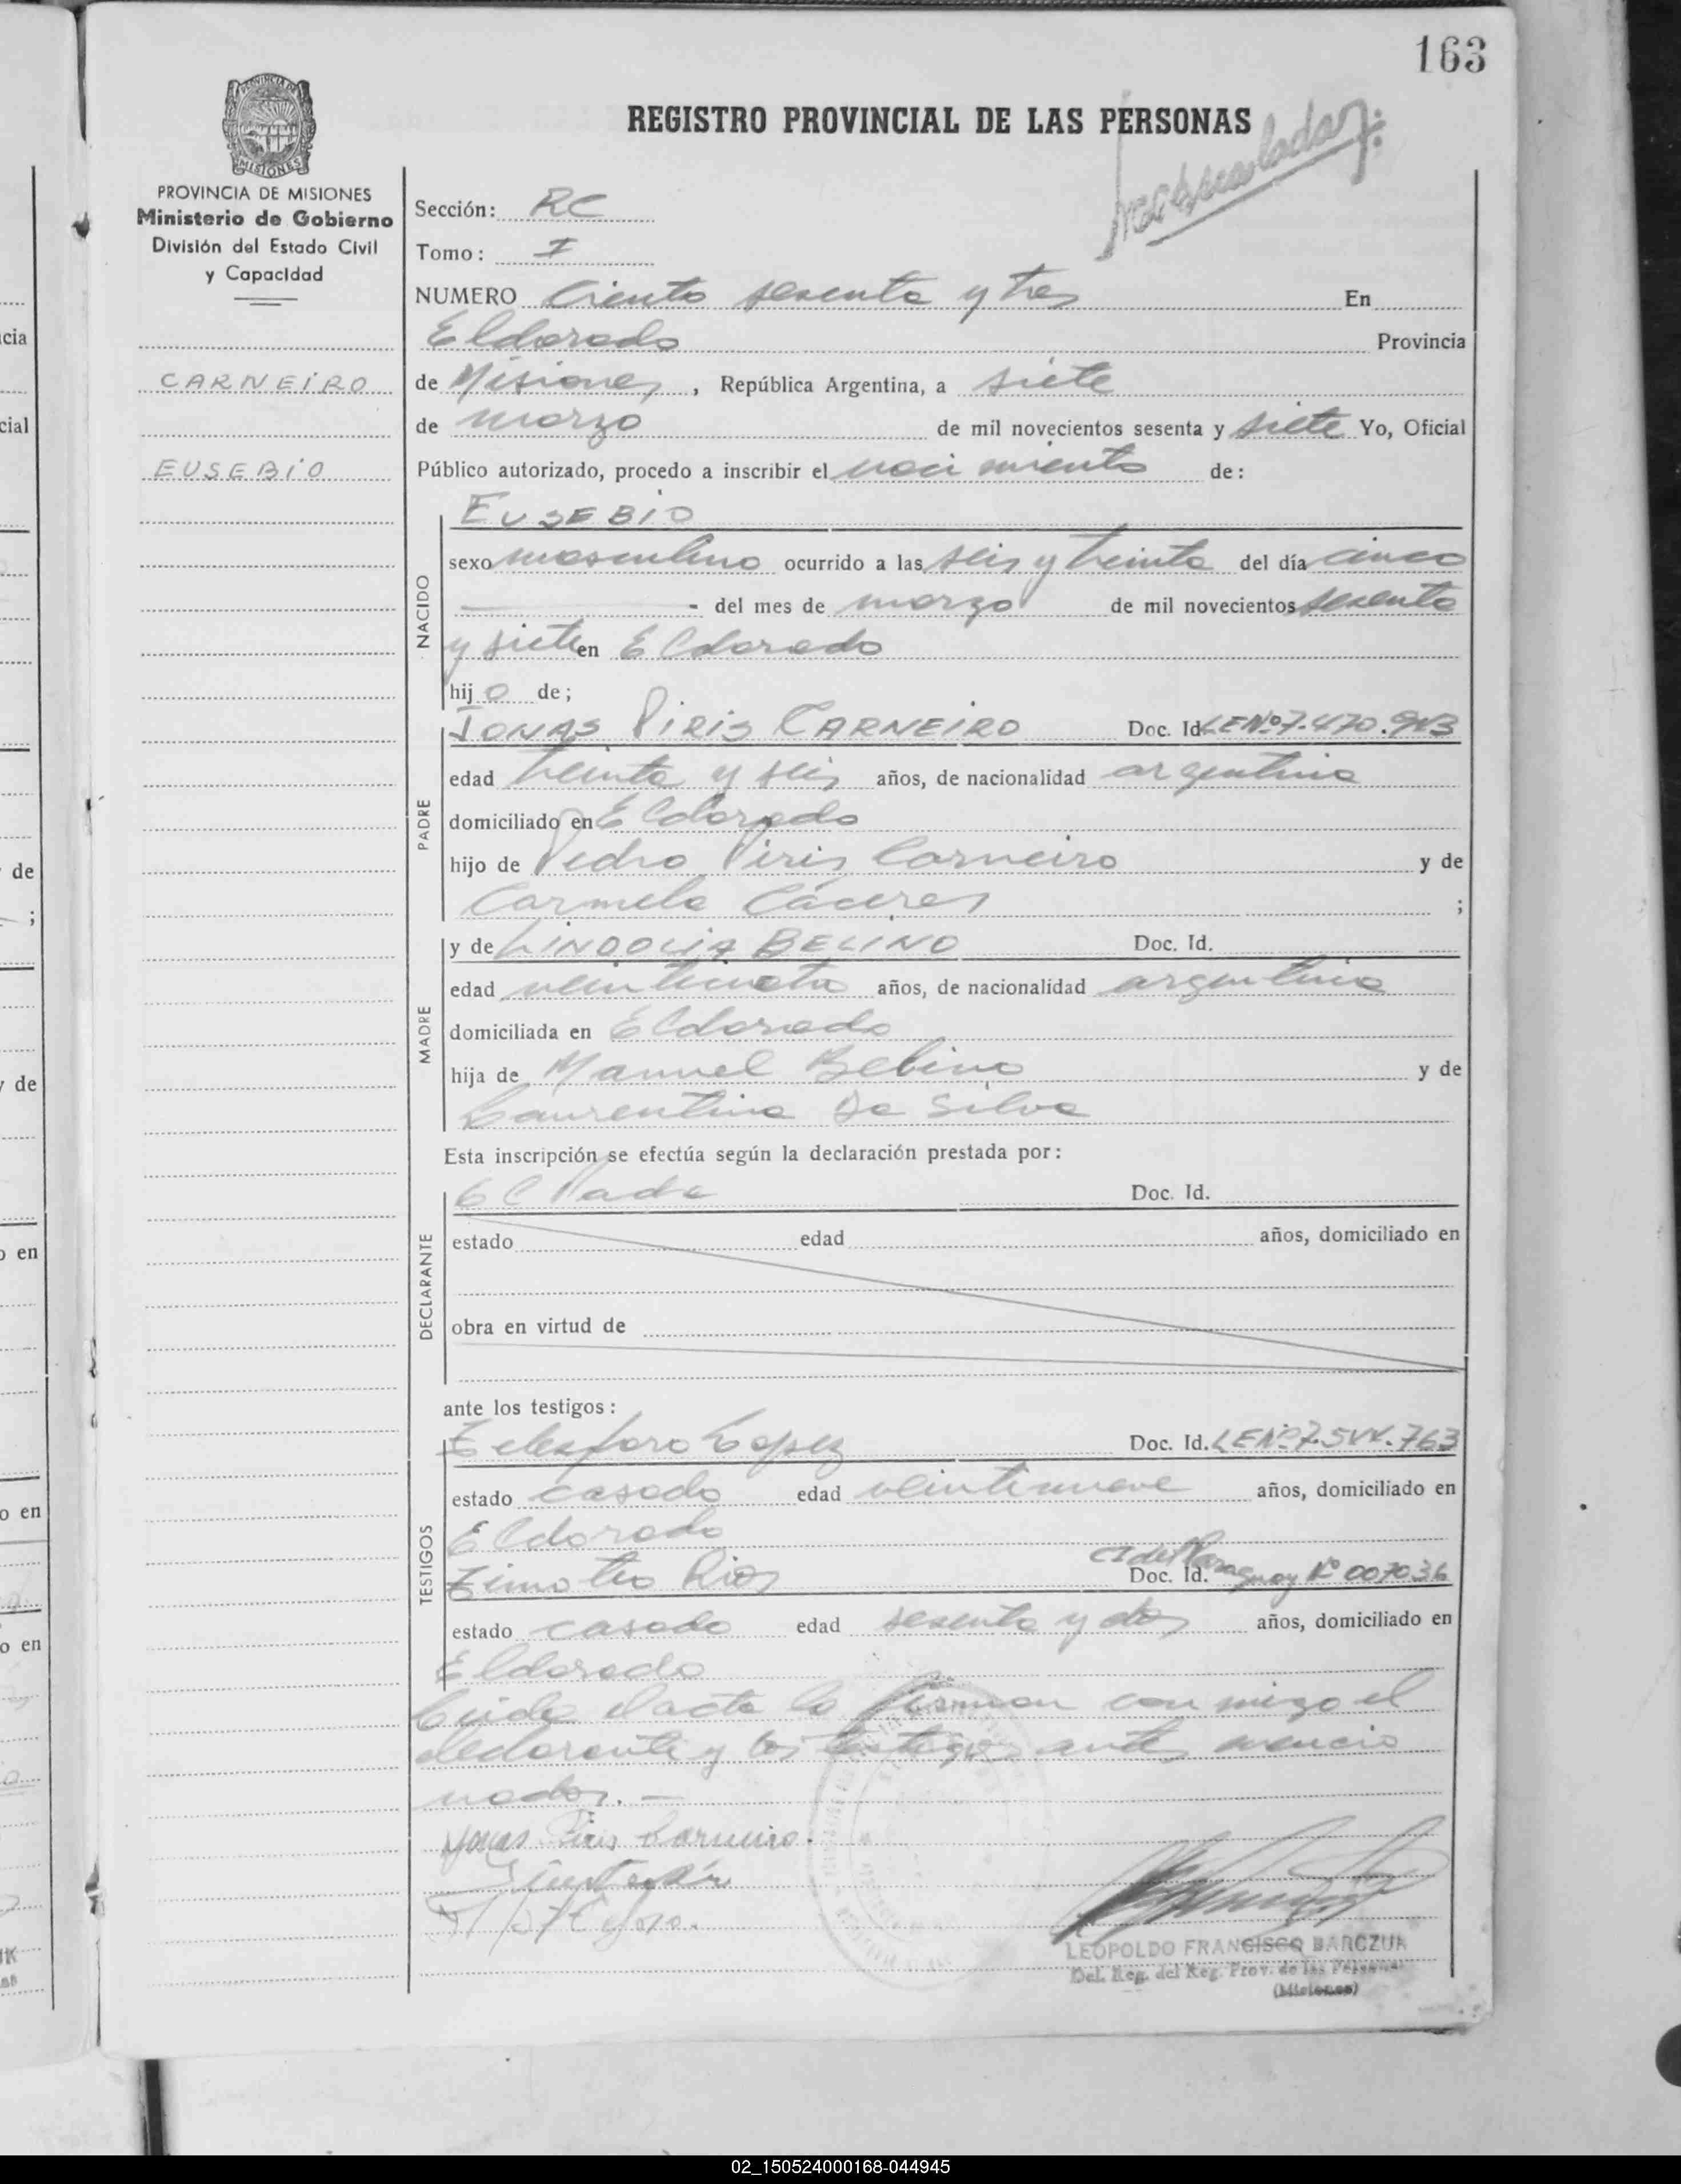 163
REGISTRO PROVINCIAL DE LAS PERSONAS
PROVINCIA DE MISIONES
Ministerio de Gobierno
División del Estado Civil
y Capacidad
CARNEIRO
EUSEBIO
Sección: RC
Tomo: I
NUMERO Ciento sesenta y tres En
Eldorado Provincia
de Misiones, República Argentina, a siete
de marzo de mil novecientos sesenta y siete Yo, Oficial
Público autorizado, procedo a inscribir el nacimiento de:
EUSEBIO
NACIDO
sexo masculino ocurrido a las seis y treinta del día cinco
- del mes de marzo de mil novecientos sesenta
y siete en Eldorado
hijo de;
JONAS PIRIS CARNEIRO Doc. Id. LE Nº 7.470.
PADRE
edad treinta y seis años, de nacionalidad argentina
domiciliado en Eldorado
hijo de Pedro Piris Carneiro y de
Carmela Cáceres ;
y de LINDOLIA BELINO Doc. Id.
MADRE
edad veinticuatro años, de nacionalidad argentina
domiciliada en Eldorado
hija de Manuel Belino y de
Laurentina Da Silva
Esta inscripción se efectúa según la declaración prestada por:
El Padre Doc. Id.
DECLARANTE
estado edad años, domiciliado en
obra en virtud de
ante los testigos:
Telesforo Lopez Doc. Id. LE Nº 7.5 .763
TESTIGOS
estado casado edad veintinueve años, domiciliado en
Eldorado
Timoteo Rios Doc. Id. CI del Paraguay Nº 007036
estado casado edad sesenta y dos años, domiciliado en
Eldorado
Leida el acta la firman con migo el
declarante y los testigos antes mencio
nados. -
Jonas Piris Carneiro.
LEOPOLDO FRANCISCO BARCZUK
Del. Reg. del Reg. Prov. de las Personas
(Misiones)
02_150524000168-044945